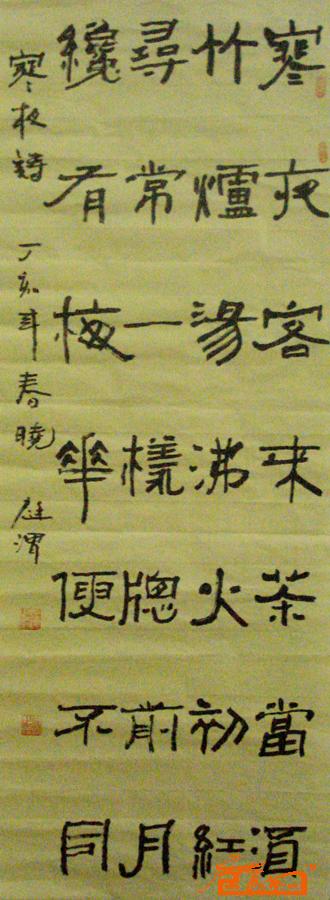 寒夜客来茶當酒
竹爐湯沸火初紅
尋常一樣牕前月
纔有梅華便不同
寒夜詩 丁亥年春曉